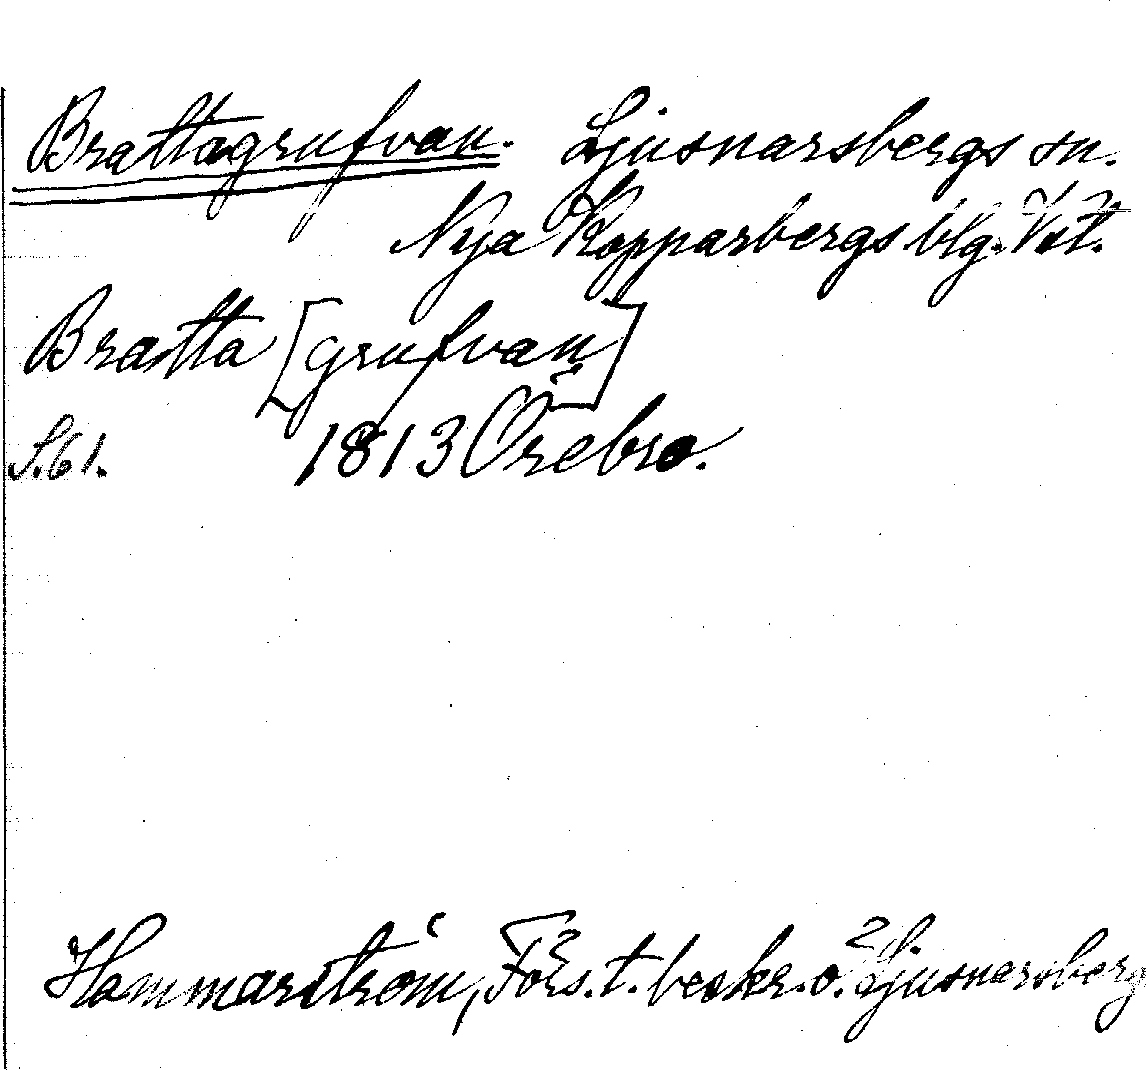 Brattagrufvan. Ljusnarsbergs sn.
Nya Kopparbergs blg. Vst.
Bratta [grufvan]
S. 61. 1813 Örebro.
Hammarström, Förs. t. beskr. ö. Ljusnarsberg